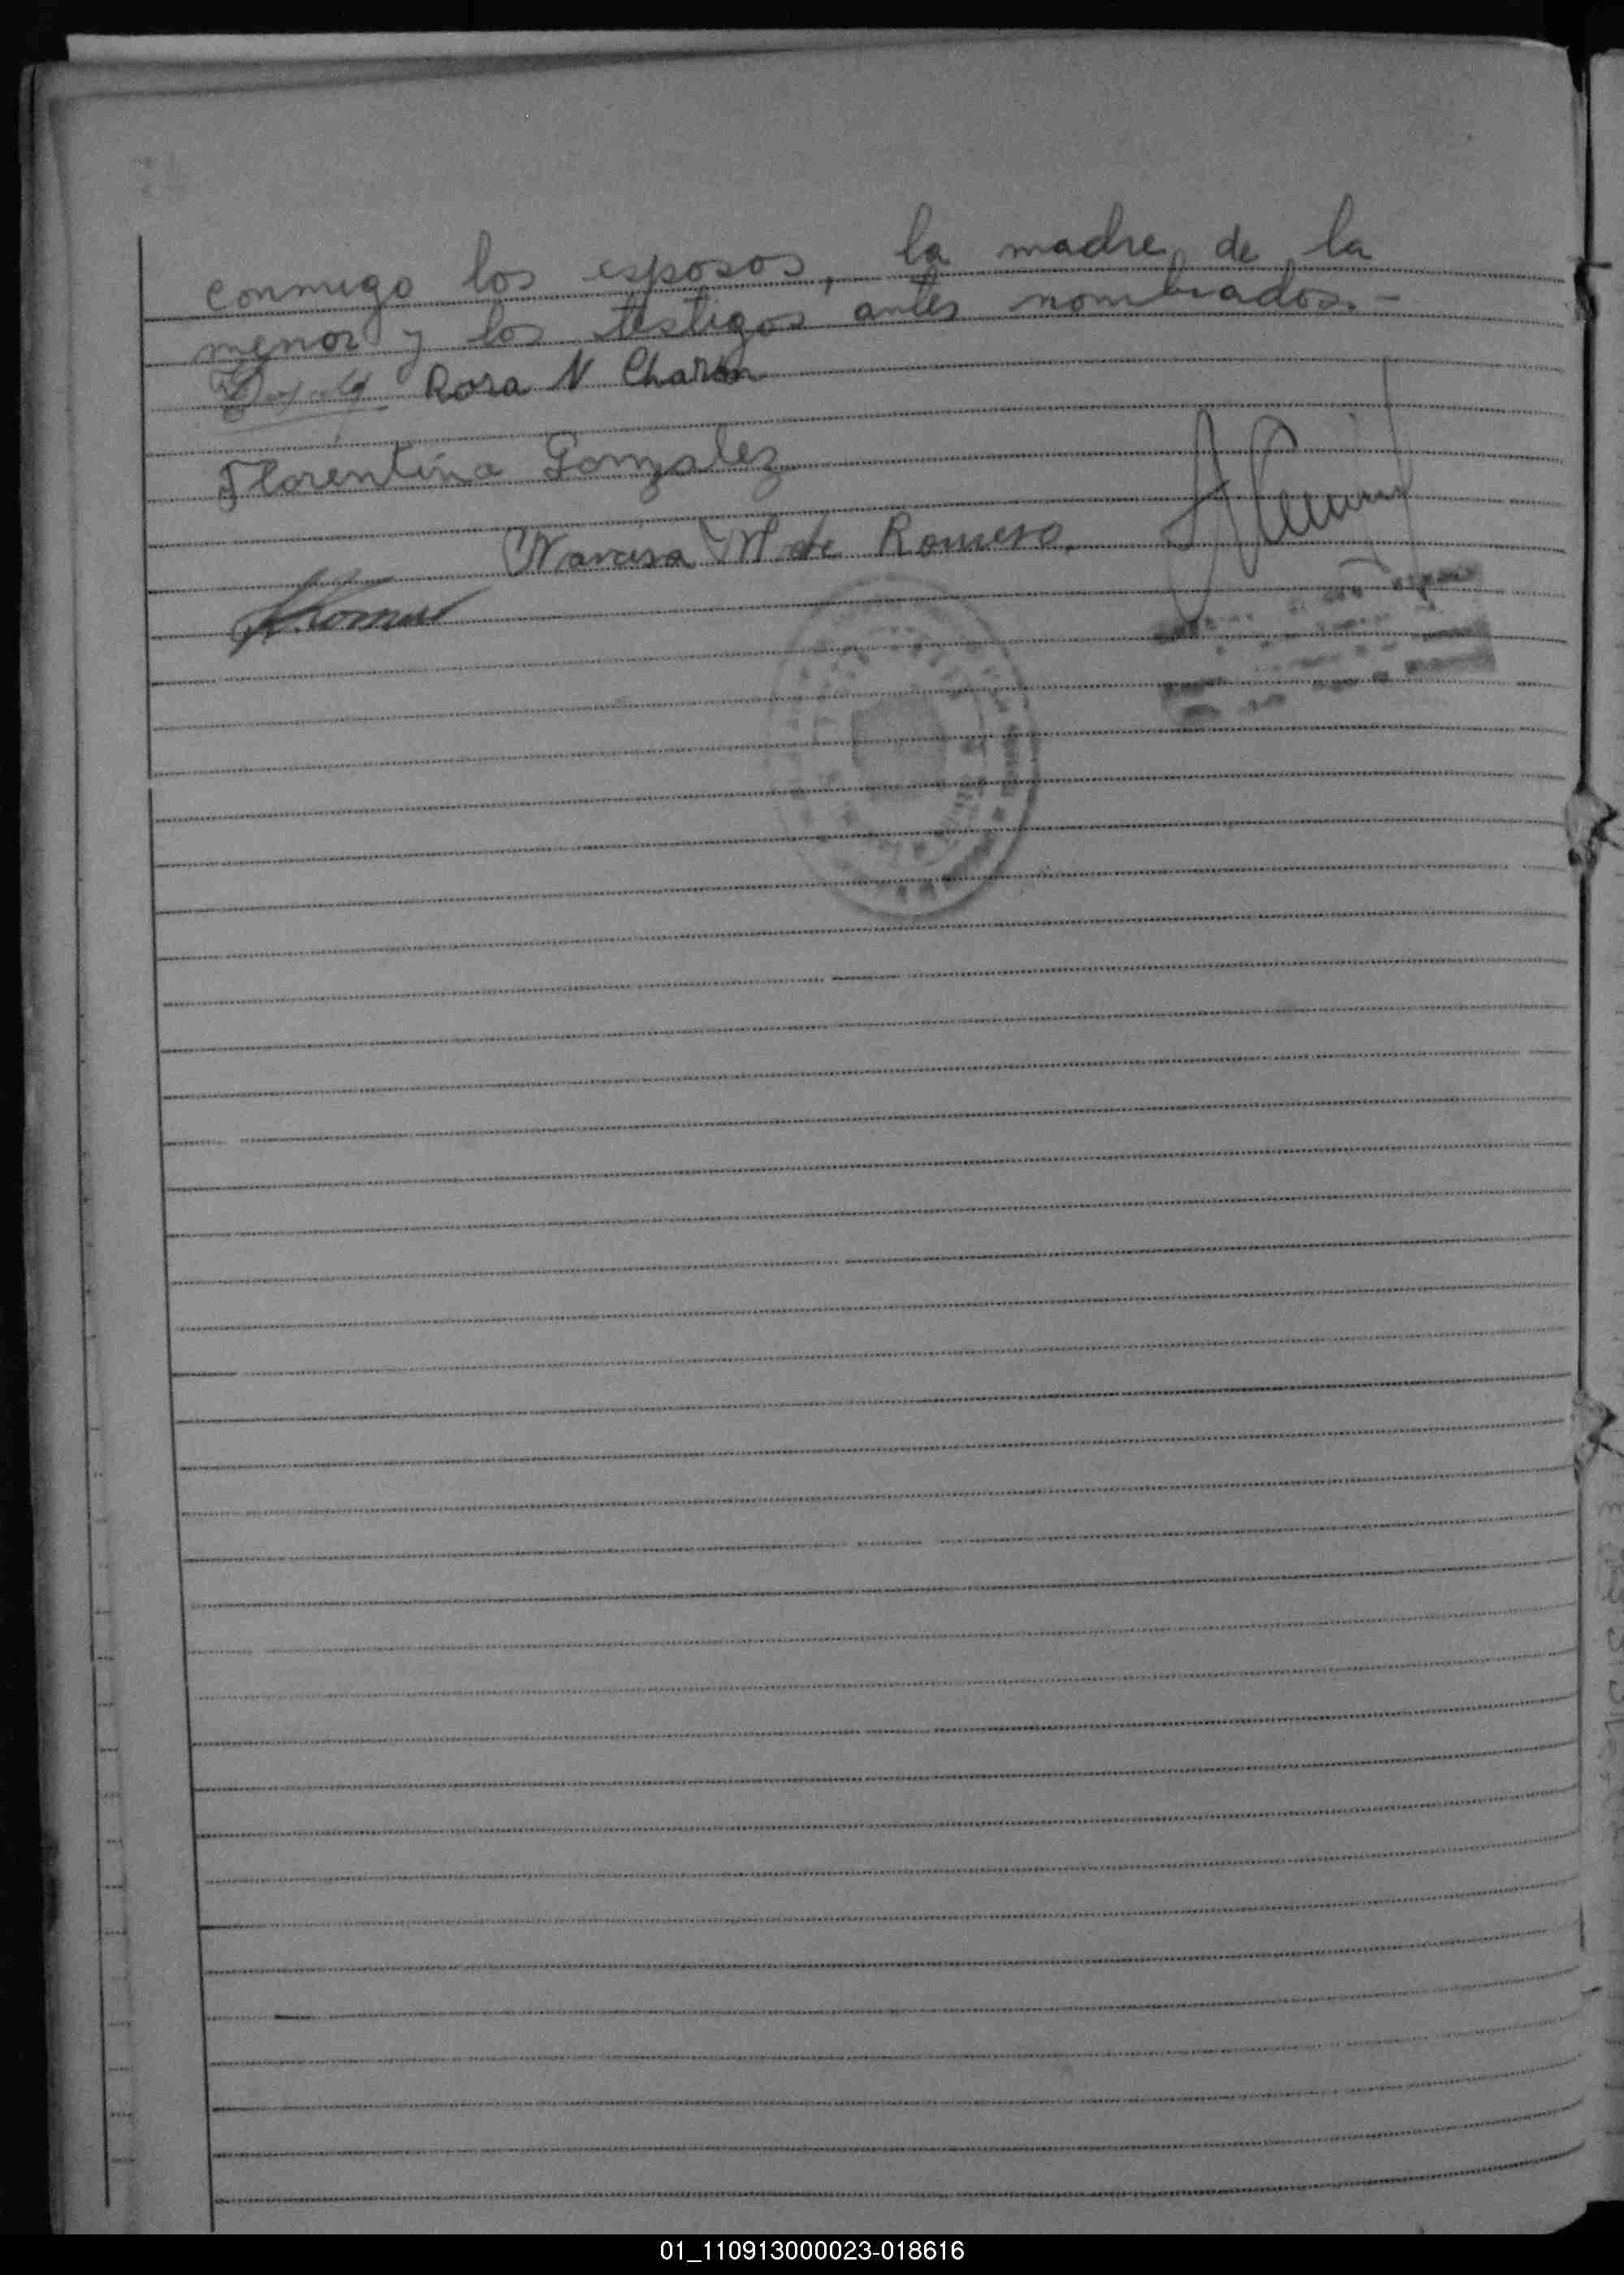 conmigo los esposos, la madre de la
menor y los testigos antes nombrados.-
Rosa N Charon
Florentina Gonzalez
Narcisa M de Romero.
01_110913000023-018616